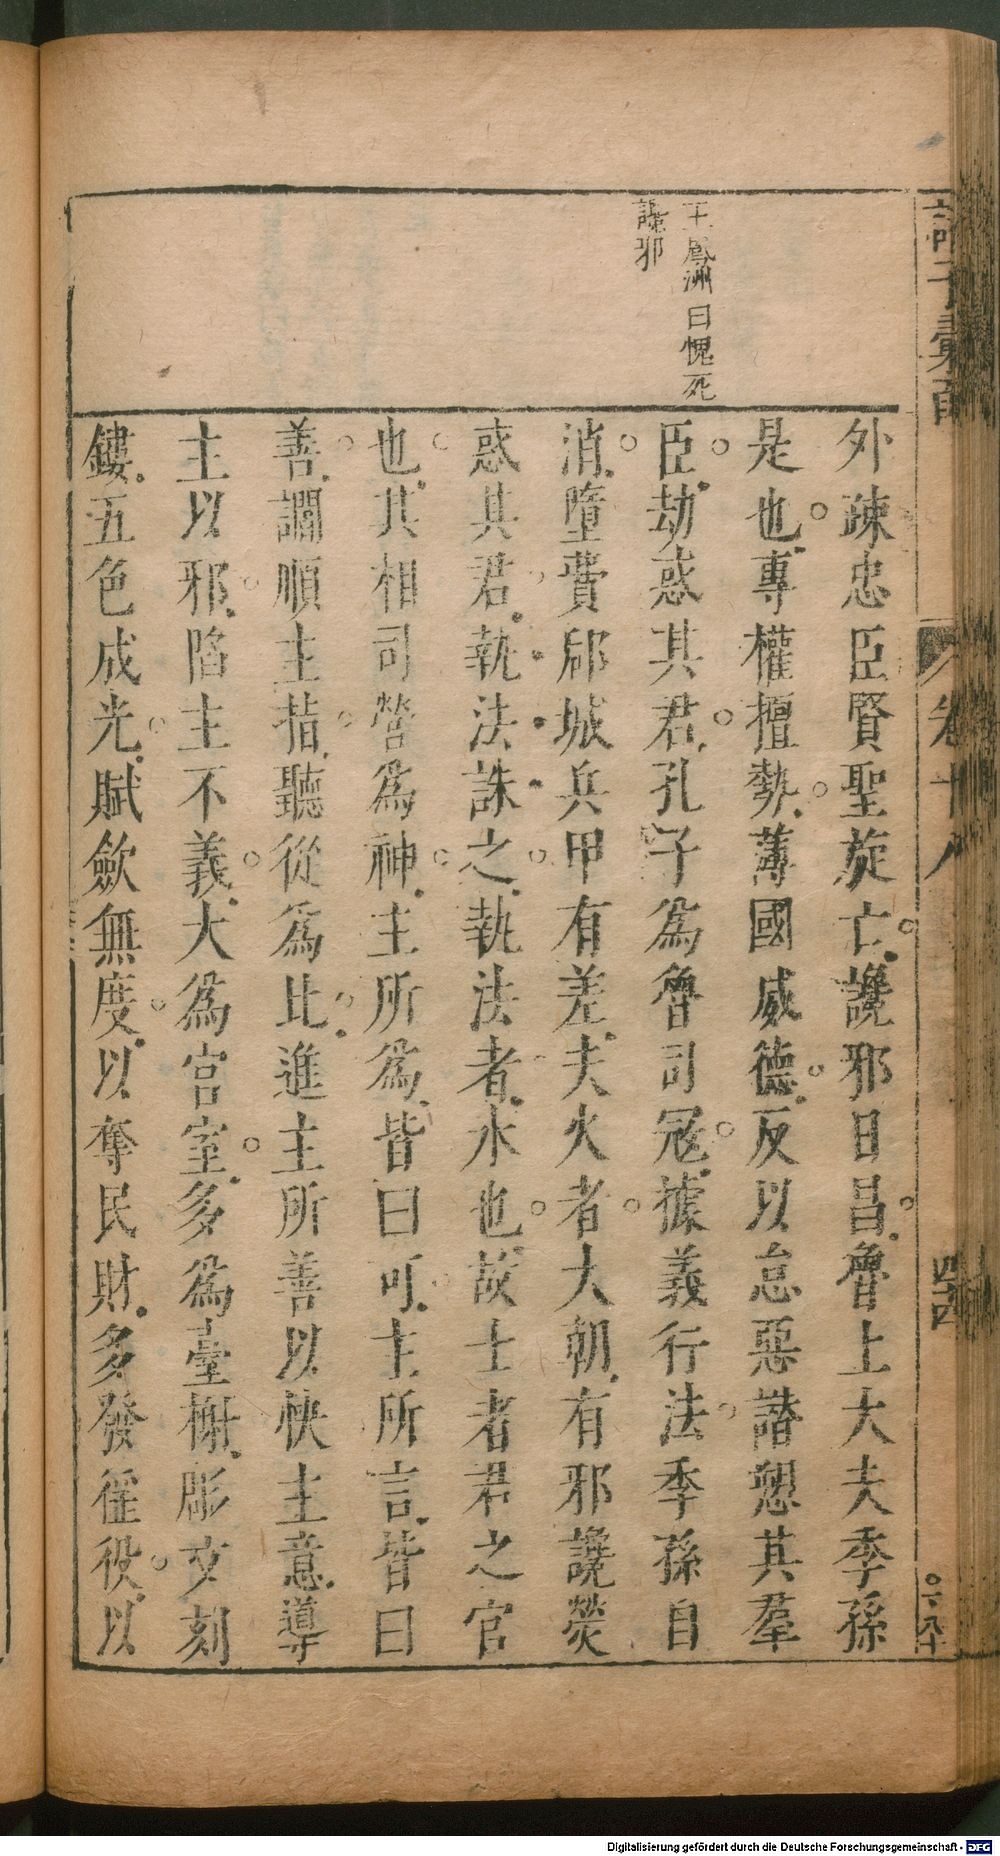 王鳳洲曰愧死
讒邪
外疎忠臣賢聖旋亡讒邪日昌魯上大夫季孫
是也專權擅勢薄國威德反以怠惡譖愬其羣
臣劫惑其君孔子為魯司冦據義行法季孫自
消墮費郈城兵甲有差夫火者大朝有邪讒熒
惑其君執法誅之執法者水也故士者君之官
也其相司營為神主所為皆曰可主所言皆曰
善讇順主指聽從為比進主所善以快主意導
主以邪陷主不義大為宮室多為臺榭彫文刻
鏤五色成光賦歛無度以奪民財多發徭役以
卷十八
Digitalisierung gefördert durch die Deutsche Forschungsgemeinschaft - DFG